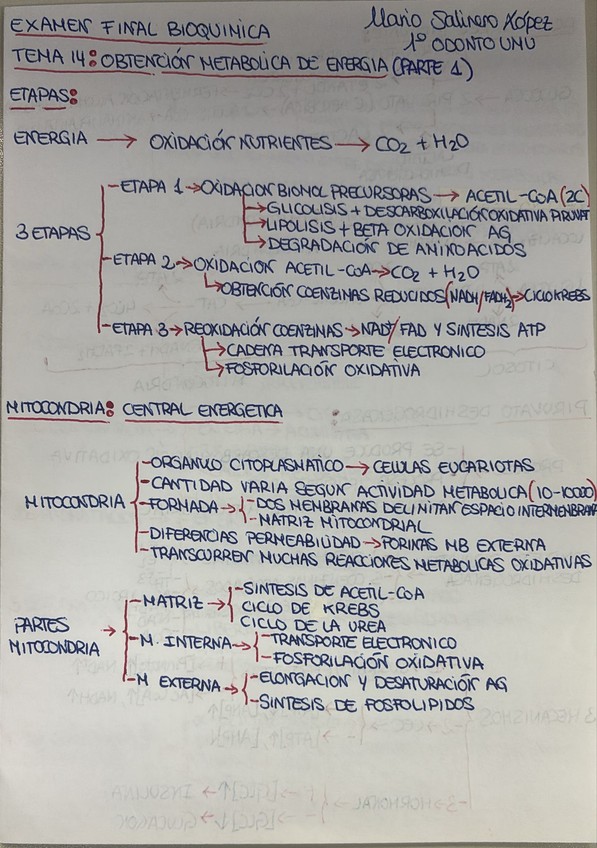 EXAMEN FINAL BIOQUINICA
Mario Salinero López
1º ODONTO UMU
TEMA 14: OBTENCIÓN METABOLICA DE ENERGIA (PARTE 1)
ETAPAS:
ENERGIA → OXIDACIÓN NUTRIENTES → CO2 + H2O
3 ETAPAS
-ETAPA 1 → OXIDACION BIOMOL PRECURSORAS → ACETIL-COA (2C)
→ GLICOLISIS + DESCARBOXILACIÓN OXIDATIVA PIRUVAT
→ LIPOLISIS + BETA OXIDACION AG
→ DEGRADACIÓN DE AMINOACIDOS
-ETAPA 2 → OXIDACION ACETIL-COA → CO2 + H2O
→ OBTENCIÓN COENZIMAS REDUCIDOS (NADH/FADH2) → CICLO KREBS
-ETAPA 3 → REOXIDACIÓN COENZIMAS → NAD+/FAD Y SINTESIS ATP
→ CADENA TRANSPORTE ELECTRONICO
→ FOSFORILACIÓN OXIDATIVA
MITOCONDRIA: CENTRAL ENERGETICA
MITOCONDRIA
-ORGANULO CITOPLASMATICO → CELULAS EUCARIOTAS
-CANTIDAD VARIA SEGUN ACTIVIDAD METABOLICA (10-10000)
-FORMADA → -DOS MEMBRANAS DELIMITAN ESPACIO INTERMEMBRANA
-MATRIZ MITOCONDRIAL
-DIFERENCIAS PERMEABILIDAD → PORINAS MB EXTERNA
-TRANSCURREN MUCHAS REACCIONES METABOLICAS OXIDATIVAS
PARTES MITOCONDRIA →
-MATRIZ → -SINTESIS DE ACETIL-COA
CICLO DE KREBS
CICLO DE LA UREA
-M. INTERNA → -TRANSPORTE ELECTRONICO
-FOSFORILACIÓN OXIDATIVA
-M EXTERNA → -ELONGACION Y DESATURACIÓN AG
-SINTESIS DE FOSFOLIPIDOS